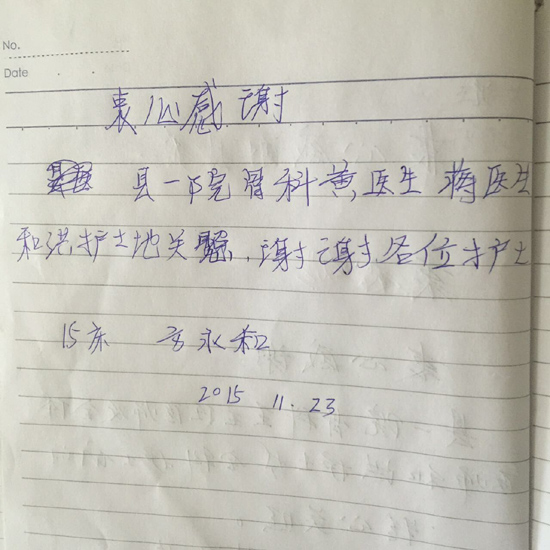 No.
Date
衷心感谢
县一院骨科黄医生蒋医生
和洪护士地关照、谢谢各位护士
15床 方永和
2015 11.23